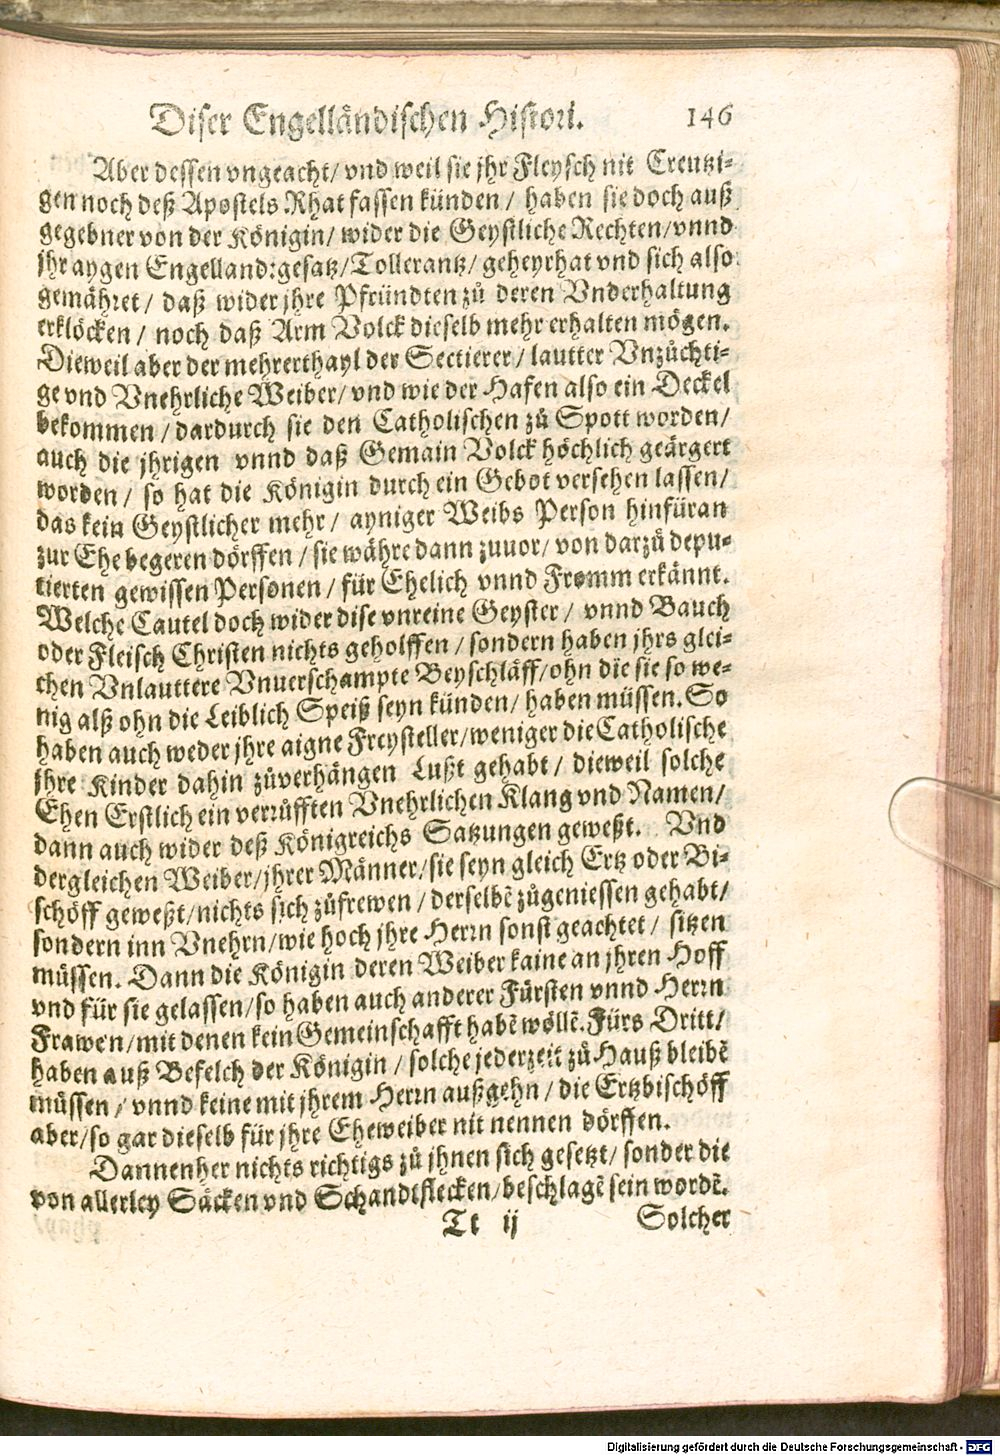 Diser Engelländischen Histori. 146
Aber dessen vngeacht/ vnd weil sie jhr Fleysch nit Creutzi-
gen noch deß Apostels Rhat fassen künden/ haben sie doch auß
gegebner von der Königin/ wider die Geystliche Rechten/ vnnd
jhr aygen Engelland: gesatz/ Tollerantz/ geheyrhat vnd sich also
gemähret/ daß wider jhre Pfründten zů deren Vnderhaltung
erklöcken/ noch daß Arm Volck dieselb mehr erhalten mögen.
Dieweil aber der mehrerthayl der Sectierer/ lautter Vnzüchti-
ge vnd Vnehrliche Weiber/ vnd wie der Hafen also ein Deckel
bekommen/ dardurch sie den Catholischen zů Spott worden/
auch die jhrigen vnnd daß Gemain Volck höchlich geärgert
worden/ so hat die Königin durch ein Gebot versehen lassen/
das kein Geystlicher mehr/ ayniger Weibs Person hinfüran
zur Ehe begeren dörffen/ sie währe dann zuuor/ von darzů depu-
tierten gewissen Personen/ für Ehelich vnnd Fromm erkännt.
Welche Cautel doch wider dise vnreine Geyster/ vnnd Bauch
oder Fleisch Christen nichts geholffen/ sondern haben jhrs glei-
chen Vnlauttere Vnuerschampte Beyschläff/ ohn die sie so we-
nig alß ohn die Leiblich Speiß seyn künden/ haben müssen. So
haben auch weder jhre aigne Freysteller/ weniger die Catholische
jhre Kinder dahin zůverhängen Lußt gehabt/ dieweil solche
Ehen Erstlich ein verrůfften Vnehrlichen Klang vnd Namen/
dann auch wider deß Königreichs Satzungen geweßt. Vnd
dergleichen Weiber/ jhrer Männer/ sie seyn gleich Ertz oder Bi-
schöff geweßt/ nichts sich zůfrewen/ derselbē zůgeniessen gehabt/
sondern inn Vnehrn/ wie hoch jhre Herrn sonst geachtet/ sitzen
müssen. Dann die Königin deren Weiber kaine an jhren Hoff
vnd für sie gelassen/ so haben auch anderer Fürsten vnnd Herrn
Frawen/ mit denen kein Gemeinschafft habē wöllē. Fürs Dritt/
haben auß Befelch der Königin/ solche jederzeit zů Hauß bleibē
müssen/ vnnd keine mit jhrem Herrn außgehn/ die Ertzbischöff
aber/ so gar dieselb für jhre Eheweiber nit nennen dörffen.
Dannenher nichts richtigs zů jhnen sich gesetzt/ sonder die
von allerley Säcken vnd Schandtflecken/ beschlagē sein wordē.
Tt ij Solcher
Digitalisierung gefördert durch die Deutsche Forschungsgemeinschaft - DFG